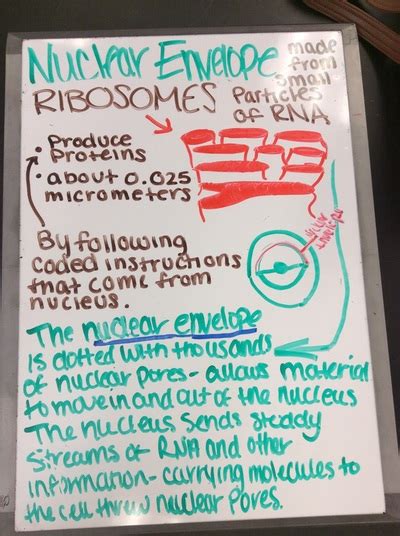 Nuclear Envelope
RIBOSOMES
made
from
small
Particles
of RNA
• Produce
Proteins
• about 0.025
micrometers
By following
coded instructions
that come from
nucleus.
nuclear envelope
The nuclear envelope
is dotted with thousands
of nuclear pores - allows material
to move in and out of the nucleus
The nucleus sends steady
streams of RNA and other
information - carrying molecules to
the cell threw nuclear pores.